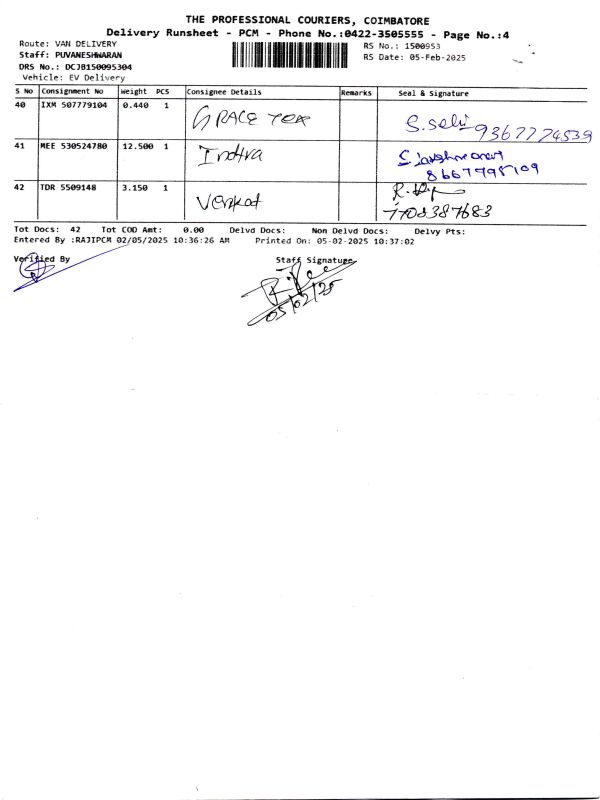 THE PROFESSIONAL COURIERS, COIMBATORE
Delivery Runsheet - PCM - Phone No.:0422-3505555 - Page No.:4
Route: VAN DELIVERY
Staff: PUVANESHWARAN
DRS No.: DCJB150095304
Vehicle: EV Delivery
RS No.: 1500953
RS Date: 05-Feb-2025
S No Consignment No Weight PCS Consignee Details Remarks Seal & Signature
40 IXM 507779104 0.440 1 GRACE TEX S.selvi 9367774539
41 MEE 530524780 12.500 1 Indhra 8667798109
42 TDR 5509148 3.150 1 Venkat 7708387683
Tot Docs: 42 Tot COD Amt: 0.00 Delvd Docs: Non Delvd Docs: Delvy Pts:
Entered By :RAJIPCM 02/05/2025 10:36:26 AM Printed On: 05-02-2025 10:37:02
Verified By Staff Signature
05/02/25